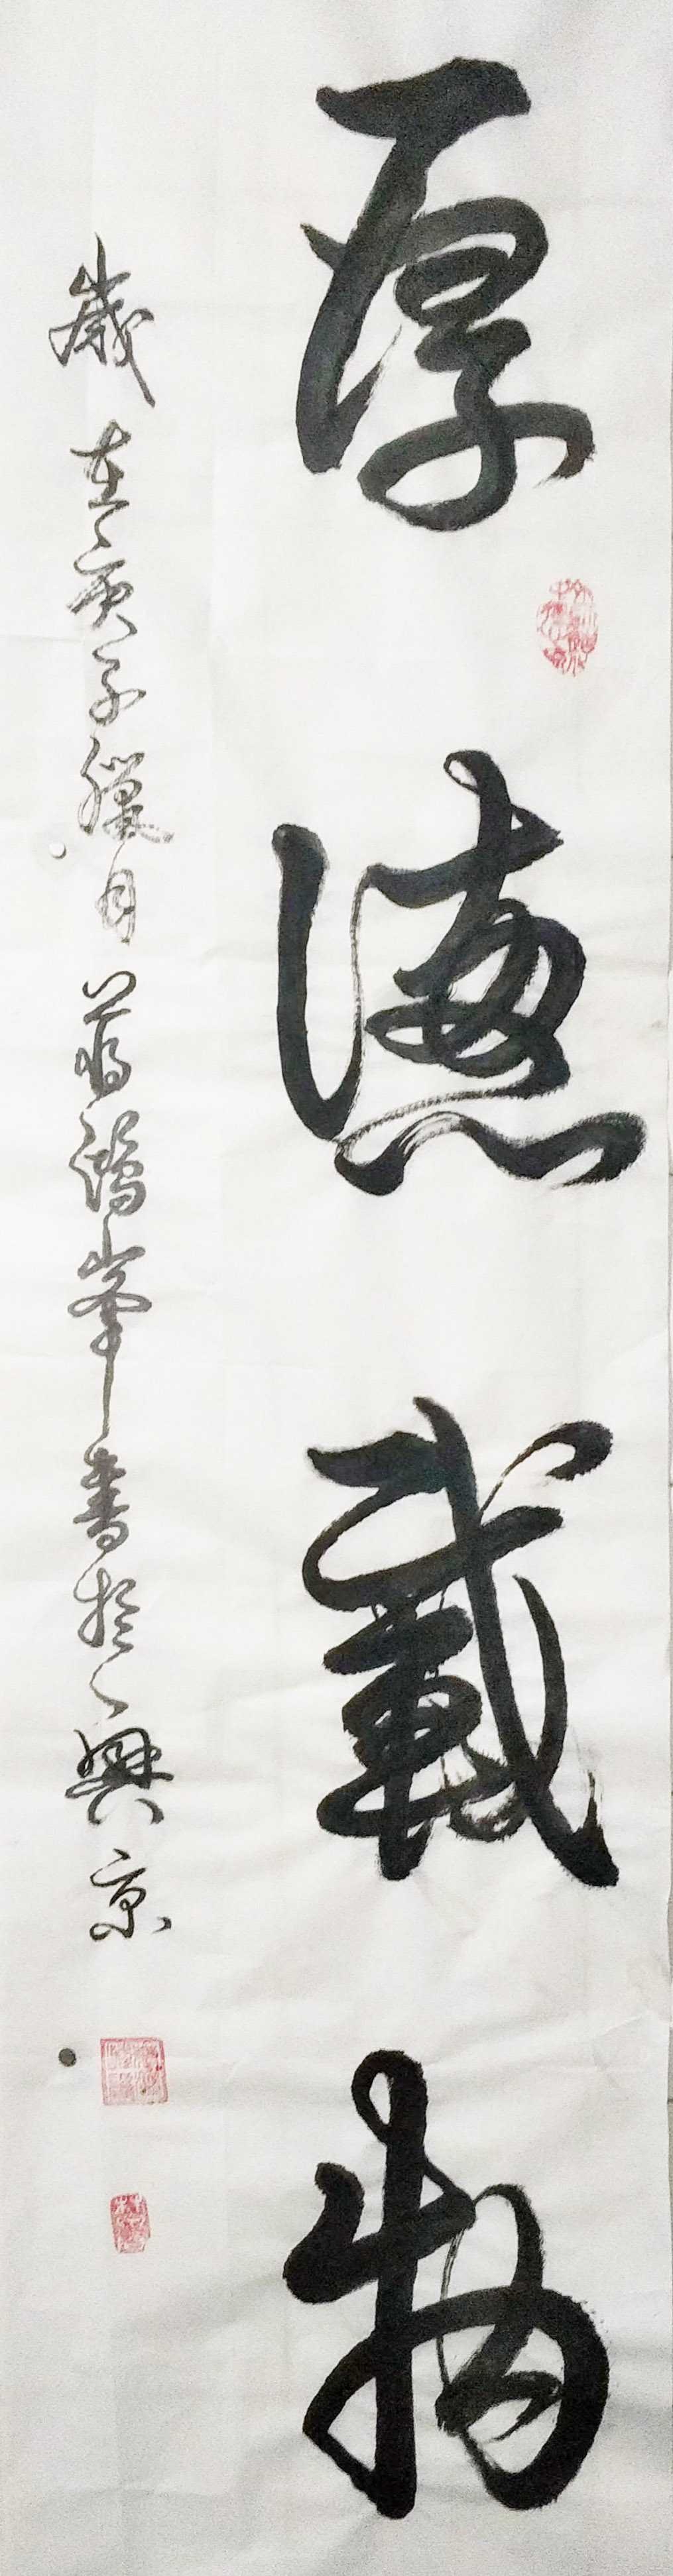 厚德載物
歲在庚子臘月蔣鴻峯書於興京